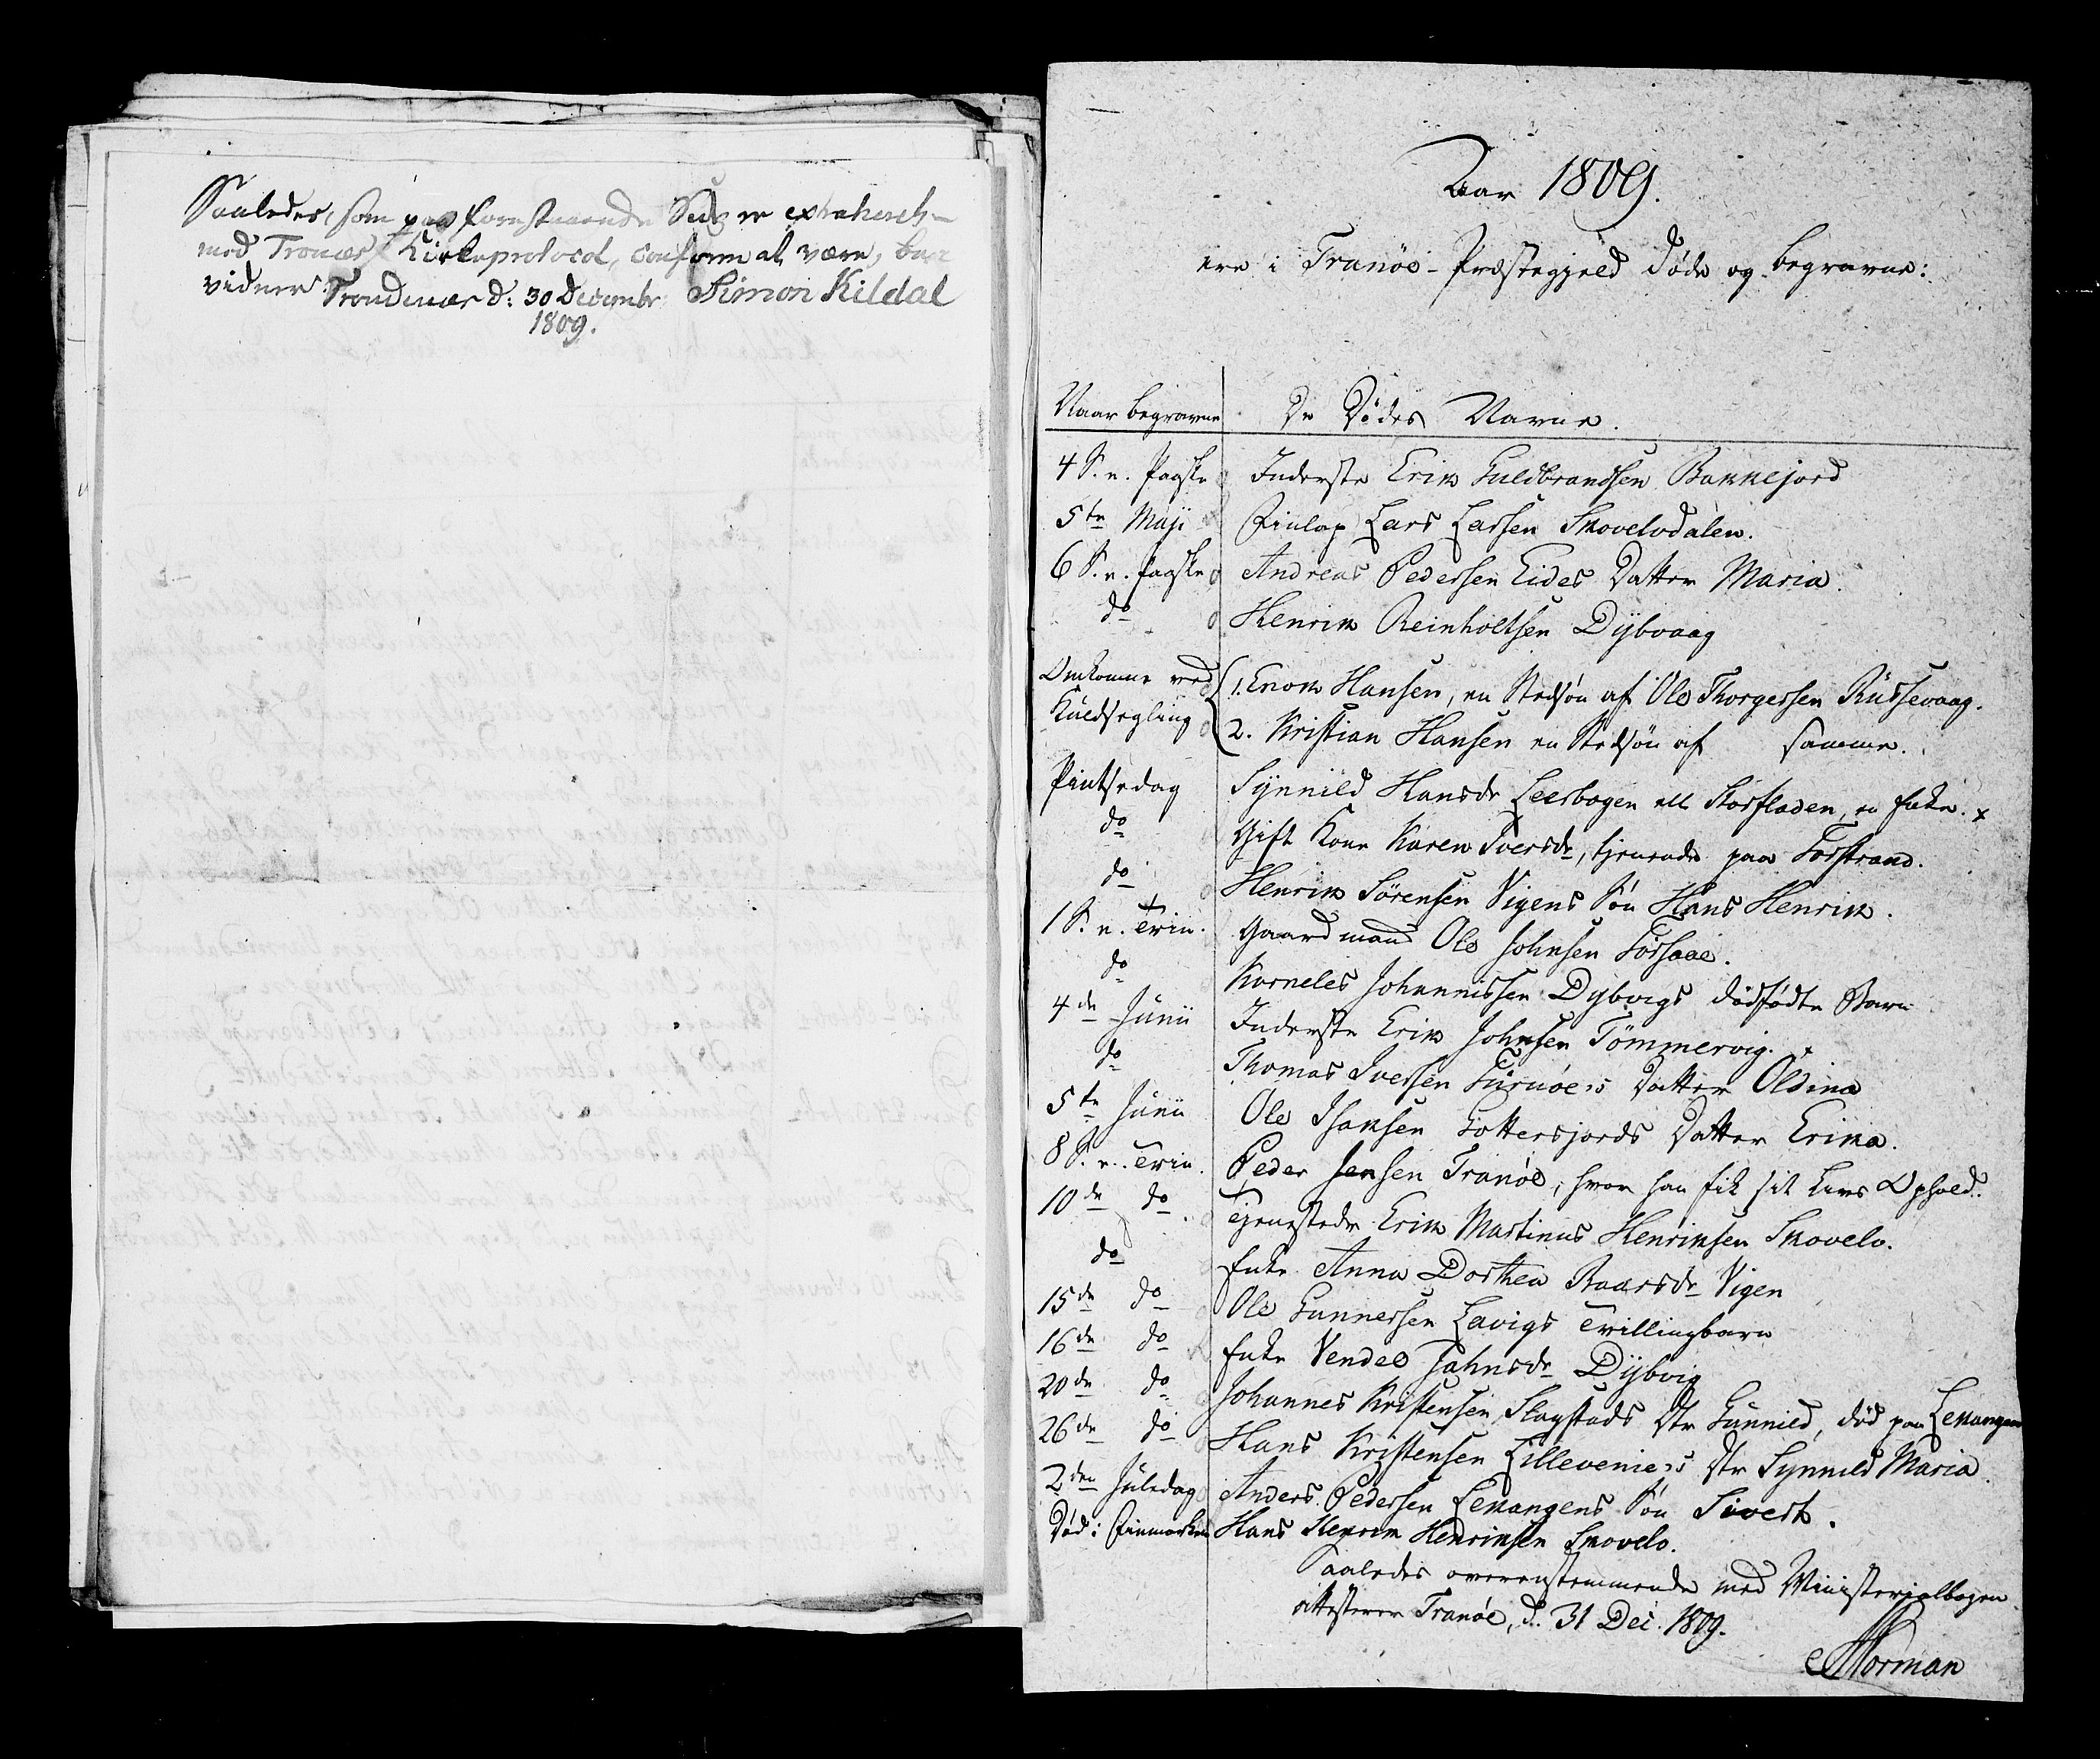 Saaledes, som paa forestaaende Side er extraheret,
med Tronæs Kirkeprotocol, conform at være, be-
vidner Trondenæs d: 30 Decembr Simon Kildal
1809.
Aar 1809.
ere i Tranöe-Præstegjeld døde og begravne:
Naar begravne De Dödes Navne.
4 S. e. Paaske Inderste Erik Guldbrandsen Bakkejord
5te Maji Finlap Lars Larsen Skovelvdalen.
6 S. e. Paaske Andreas Pedersen Eides Datter Maria.
do Henrik Reinholtsen Dÿbvaag
Omkomne ved 1. Enok Hansen, en Stedsön af Ole Thorgersen Russevaag.
Kuldsegling 2. Kristian Hansen en Stedsön af samme.
Pintsedag Sÿnnild Hansdr Leerbogen ell Storfladen, en Enke. x
do Gift Kone Karen Iversdr, tjenende paa Forstrand.
do Henrik Sörensen Vigens Sön Hans Henrik.
1 S. e. Trin. Gaardmand Ole Johnsen
do Korneles Johannissen Dybvigs dödfödte Barn
4de Junii Inderste Erik Johnsen Tömmervig. x
do Thomas Iversen Datter Oldina
5te Junii Ole Isaksen Datter Erika.
8 S. e. Trin. Peder Jensen Tranöe, hvor han fik sit Livs Ophold.
10de do Tjenestedr. Erik Martinus Henriksen Skovelv.
do Enke Anna Dorthea Baarsdr Vigen
15de do Ole Gunnersen Lavigs Tvillingbarn
16de do Enke Vendel Jahnsdr Dÿbvig
20de do Johannes Kristensen Slagstads Dtr Gunnild, död paa Lekangen
26de do Hans Kristensen Dtr Synnild Maria.
2den Juledag Anders Pedersen Lekangens Sön Sivert.
Död i Finmarken Hans Henrik Henriksen Skovelv.
Saaledes overenstemmende med Ministerialbogen
attesterer Tranöe, d. 31 Dec. 1809.
Norman